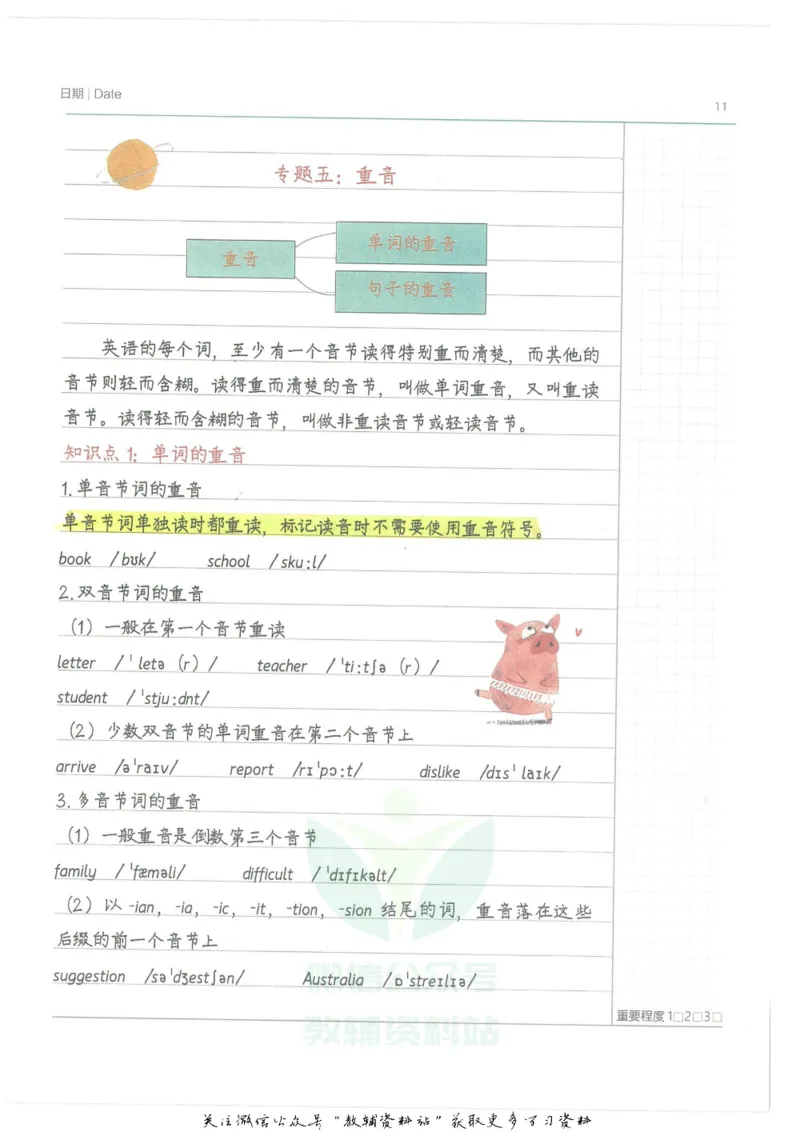 日期 | Date
11
专题五：重音
重音
单词的重音
句子的重音
英语的每个词，至少有一个音节读得特别重而清楚，而其他的
音节则轻而含糊。读得重而清楚的音节，叫做单词重音，又叫重读
音节。读得轻而含糊的音节，叫做非重读音节或轻读音节。
知识点 1：单词的重音
1.单音节词的重音
单音节词单独读时都重读，标记读音时不需要使用重音符号。
book /bʊk/ school /skuːl/
2.双音节词的重音
（1）一般在第一个音节重读
letter /ˈletə（r）/ teacher /ˈtiːtʃə（r）/
student /ˈstjuːdnt/
（2）少数双音节的单词重音在第二个音节上
arrive /əˈraɪv/ report /rɪˈpɔːt/ dislike /dɪsˈlaɪk/
3.多音节词的重音
（1）一般重音是倒数第三个音节
family /ˈfæməli/ difficult /ˈdɪfɪkəlt/
（2）以 -ian，-ia，-ic，-it，-tion，-sion 结尾的词，重音落在这些
后缀的前一个音节上
suggestion /səˈdʒestʃən/ Australia /ɒˈstreɪlɪə/
微信公众号
教辅资料站
重要程度 1□2□3□
关注微信公众号“教辅资料站”获取更多学习资料